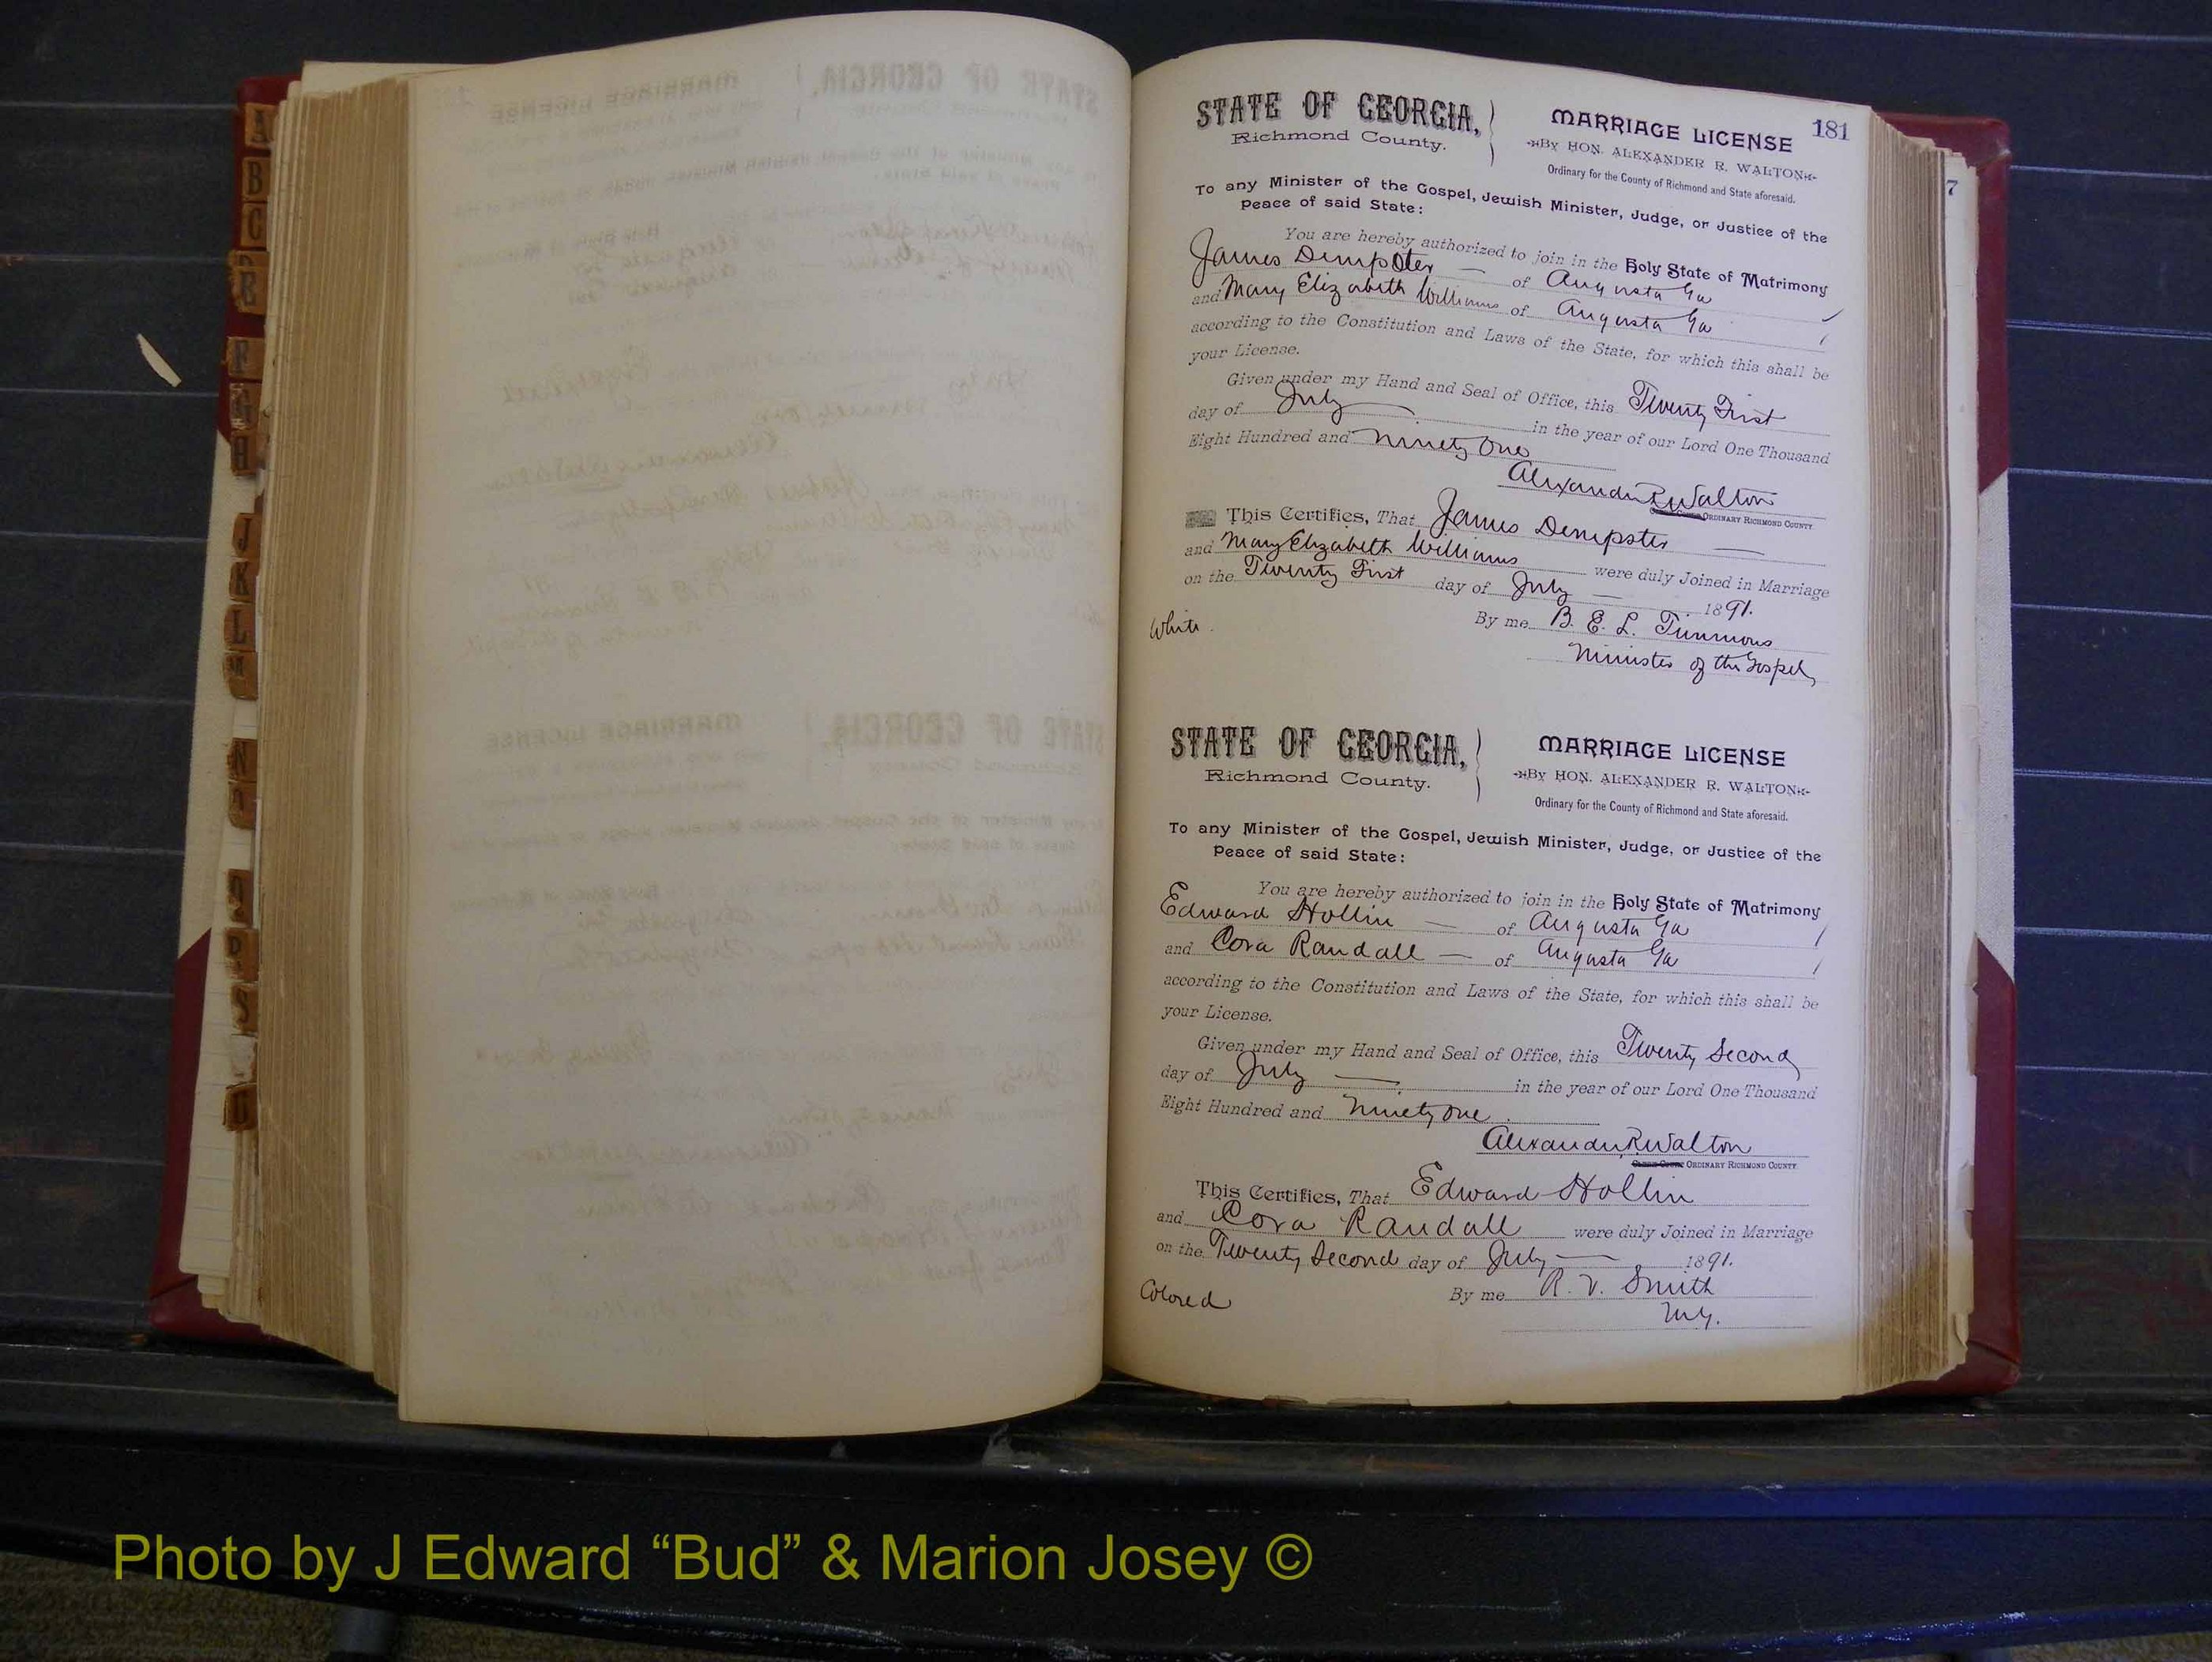 181
STATE OF GEORGIA,
Richmond County.
MARRIAGE LICENSE
BY HON. ALEXANDER R. WALTON
Ordinary for the County of Richmond and State aforesaid.
To any Minister of the Gospel, Jewish Minister, Judge, or Justice of the
Peace of said State:
You are hereby authorized to join in the Holy State of Matrimony
James Dempster of Augusta Ga
and Mary Elizabeth Williams of Augusta Ga
according to the Constitution and Laws of the State, for which this shall be
your License.
Given under my Hand and Seal of Office, this Twenty First
day of July in the year of our Lord One Thousand
Eight Hundred and Ninety One
Alexander R Walton
ORDINARY RICHMOND COUNTY.
This Certifies, That James Dempster
and Mary Elizabeth Williams were duly Joined in Marriage
on the Twenty First day of July 1891.
White
By me B. E. L. Timmons
Minister of the Gospel
STATE OF GEORGIA,
Richmond County.
MARRIAGE LICENSE
BY HON. ALEXANDER R. WALTON
Ordinary for the County of Richmond and State aforesaid.
To any Minister of the Gospel, Jewish Minister, Judge, or Justice of the
Peace of said State:
You are hereby authorized to join in the Holy State of Matrimony
Edward Hollin of Augusta Ga
and Cora Randall of Augusta Ga
according to the Constitution and Laws of the State, for which this shall be
your License.
Given under my Hand and Seal of Office, this Twenty Second
day of July in the year of our Lord One Thousand
Eight Hundred and Ninety One
Alexander R Walton
ORDINARY RICHMOND COUNTY.
This Certifies, That Edward Hollin
and Cora Randall were duly Joined in Marriage
on the Twenty Second day of July 1891.
Colored
By me R. V. Smith
M.G.
7
A
B
C
D
E
F
G
H
J
K
L
M
N
O
Q
S
Photo by J Edward “Bud” & Marion Josey ©